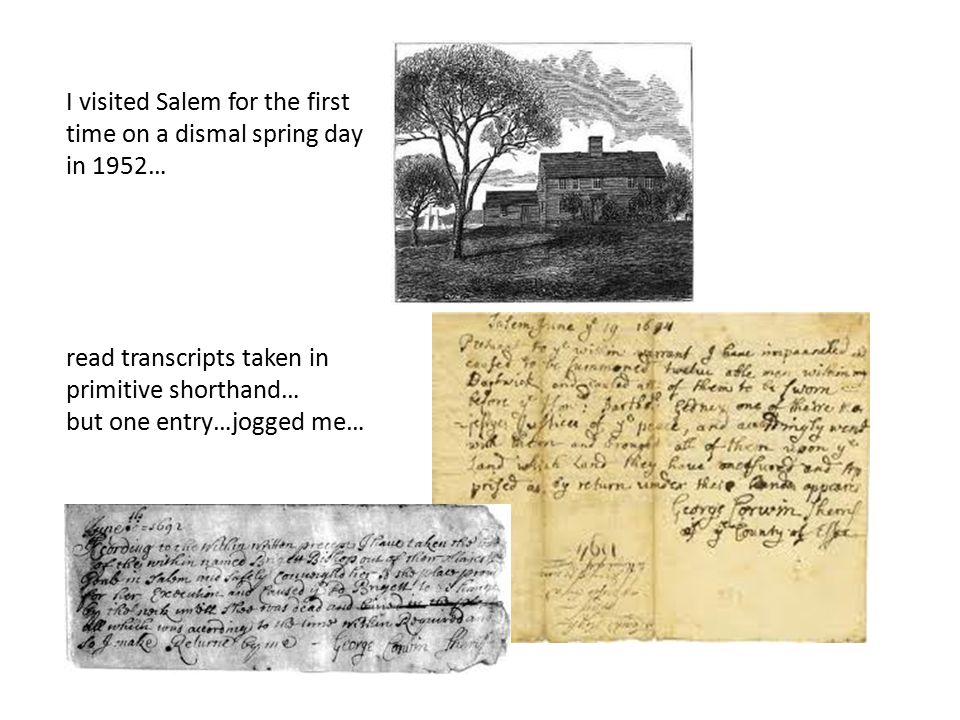 I visited Salem for the first
time on a dismal spring day
in 1952…
read transcripts taken in
primitive shorthand…
but one entry…jogged me…
Salem June ye 19 1694
to ye within warrant I have impanneled
caused to be summoned twelve able men within my
and caused all of them to be sworn
before ye Hon: Barthol Gedney one of theire
Justices of ye peace, and accordingly went
with them and brought all of them upon ye
Land which Land they have and
as by return under their hands appeares
George Corwin Sherif
of ye County of Essex
June = 1692
to the Within Written precept I have taken the
of the within named Bishop out of their
Goale in Salem and Safely Conveighd her to the place
for her Execution and Caused ye sd to be hangd
by the neck untill Shee was dead and in the
all which was according to the time within Required and
So I make Returne by me George Corwin Sherif